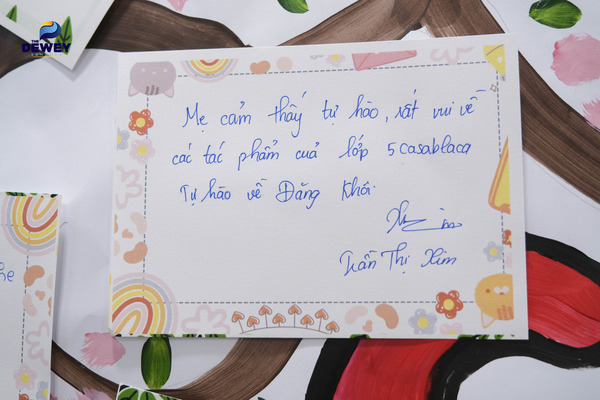 THE
DEWEY
SCHOOLS
Mẹ cảm thấy tự hào, rất vui về
các tác phẩm cuả lớp 5 casablaca
Tự hào về Đăng Khôi.
Trần Thị Xim